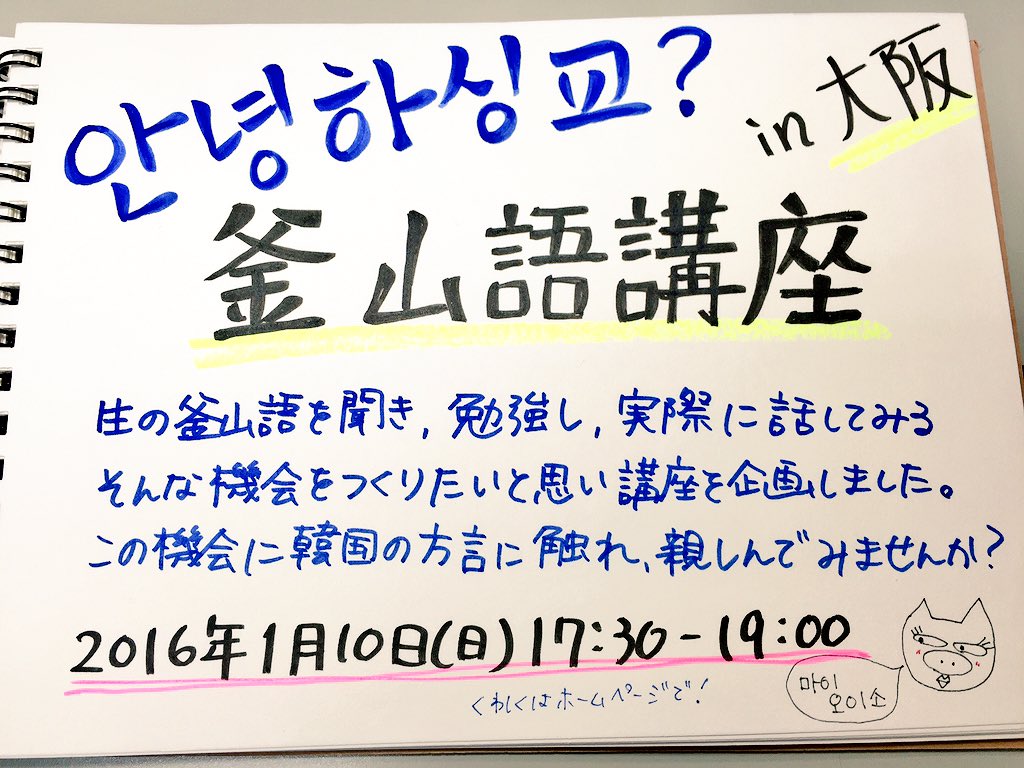 안녕하싱교?
in 大阪
釜山語講座
生の釜山語を聞き, 勉強し, 実際に話してみる
そんな機会をつくりたいと思い講座を企画しました。
この機会に韓国の方言に触れ, 親しんでみませんか?
2016年1月10日(日)17:30-19:00
くわしくはホームページで!
마이
오이소